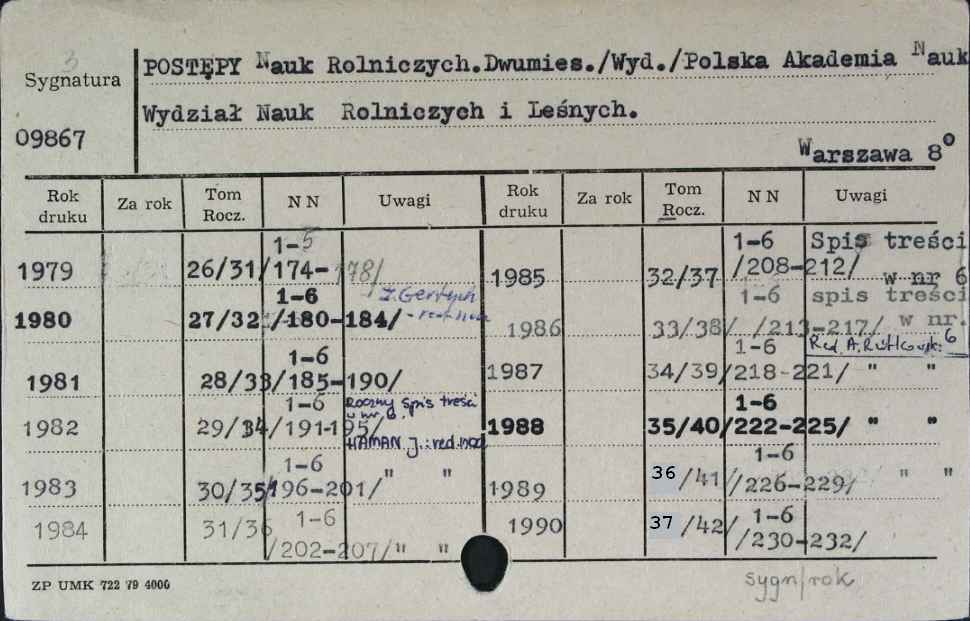 3
Sygnatura
09867
POSTĘPY Nauk Rolniczych.Dwumies./Wyd./Polska Akademia Nauk
Wydział Nauk Rolniczych i Leśnych.
Warszawa 8°
Rok druku Za rok Tom Rocz. NN Uwagi Rok druku Za rok Tom Rocz. NN Uwagi
1-5
1979 26/31/174-178/
1-6 J. Gertych
1980 27/32 /180-184/
1-6
1981 28/33/185-190/
1-6 Roczny spis treści
w nr 6.
1982 29/34/191-195/
HAMAN J.:red.nacz
1-6
1983 30/35/196-201/ " "
1984 31/36 1-6
/202-207/" "
1-6 Spis treści
1985 32/37 /208-212/ w nr 6
1-6 spis treści
1986 33/38/ /213-217/ w nr. 6
1-6 Red. A. Rutkowski
1987 34/39/218-221/ " "
1-6
1988 35/40/222-225/ " "
1-6
1989 36/41//226-229/ " "
1990 37/42/ 1-6
/230-232/
ZP UMK 722 79 4000
sygn/rok